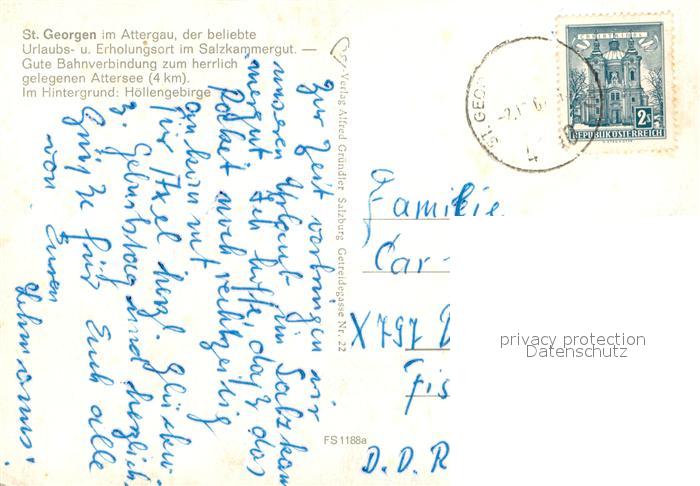 St. Georgen im Attergau, der beliebte
Urlaubs- u. Erholungsort im Salzkammergut. —
Gute Bahnverbindung zum herrlich
gelegenen Attersee (4 km).
Im Hintergrund: Höllengebirge
Verlag Alfred Gründler Salzburg Getreidegasse Nr. 22
FS 1188a
Zur Zeit verbringen wir
unseren Urlaub im Salzkam
mergut. Ich hoffe, daß das
Packet noch rechtzeitig
ankommt
für Axel herzl. Glückw.
z. Geburtstag und herzlich
Grüße für Euch alle
von Euren
Lehmanns.
ST. GEOR
CHRISTKINDL
2s
REPUBLIK ÖSTERREICH
Familie
Car-
X 797 D
Fis
D.D.R
privacy protection
Datenschutz